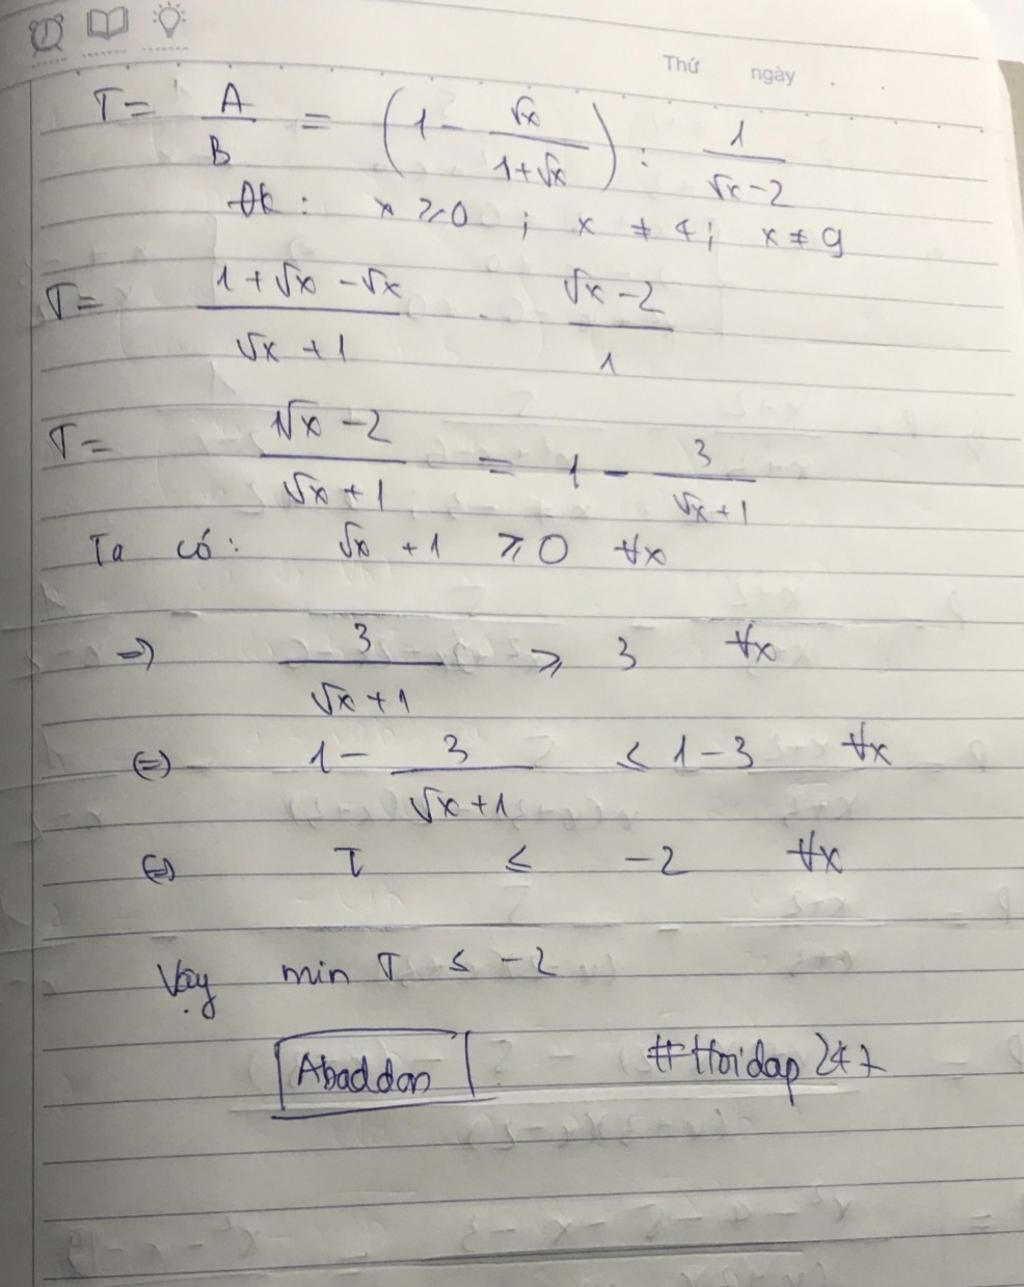 Thứ ngày
T = A/B = (1 - √x/(1+√x)) : 1/(√x-2)
Đk : x ≥ 0 ; x ≠ 4 ; x ≠ 9
T = (1+√x-√x)/(√x+1) . (√x-2)/1
T = (√x-2)/(√x+1) = 1 - 3/(√x+1)
Ta có: √x + 1 ≥ 0 ∀x
=> 3/(√x+1) ≥ 3 ∀x
(=) 1 - 3/(√x+1) ≤ 1-3 ∀x
(=) T ≤ -2 ∀x
Vậy min T ≤ -2
Abaddon #Hoidap247